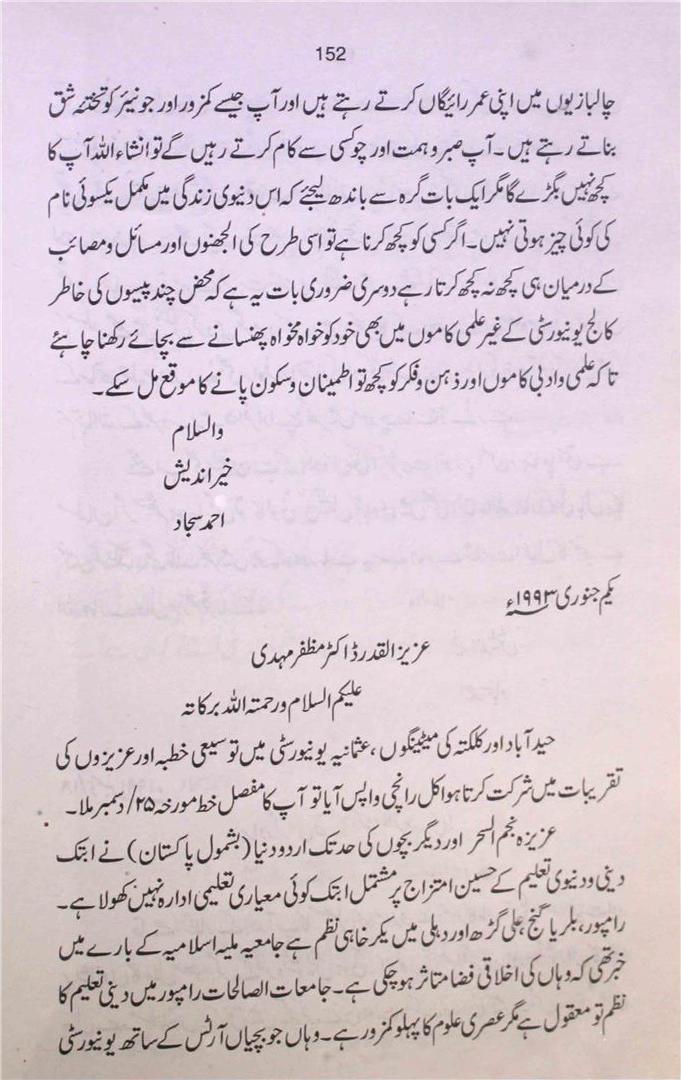 152
چالبازیوں میں اپنی عمر رائیگاں کرتے رہتے ہیں اور آپ جیسے کمزور اور جونیئر کو تختۂ مشق
بناتے رہتے ہیں۔ آپ صبر و ہمت اور چوکسی سے کام کرتے رہیں گے تو انشاء اللہ آپ کا
کچھ نہیں بگڑے گا مگر ایک بات گرہ سے باندھ لیجئے کہ اس دنیوی زندگی میں مکمل یکسوئی نام
کی کوئی چیز ہوتی نہیں۔ اگر کسی کو کچھ کرنا ہے تو اسی طرح کی الجھنوں اور مسائل و مصائب
کے درمیان ہی کچھ نہ کچھ کرتا رہے دوسری ضروری بات یہ ہے کہ محض چند پیسوں کی خاطر
کالج یونیورسٹی کے غیر علمی کاموں میں بھی خود کو خواہ مخواہ پھنسانے سے بچائے رکھنا چاہئے
تاکہ علمی و ادبی کاموں اور ذہن و فکر کو کچھ تو اطمینان و سکون پانے کا موقع مل سکے۔
والسلام
خیر اندیش
احمد سجاد
یکم جنوری ۱۹۹۳ء
عزیز القدر ڈاکٹر مظفر مہدی
علیکم السلام ورحمتہ اللہ برکاتہ
حیدآباد اور کلکتہ کی میٹینگوں، عثمانیہ یونیورسٹی میں توسیعی خطبہ اور عزیزوں کی
تقریبات میں شرکت کرتا ہوا کل رانچی واپس آیا تو آپ کا مفصل خط مورخہ ۲۵/ دسمبر ملا۔
عزیزہ نجم السحر اور دیگر بچوں کی حد تک اردو دنیا (بشمول پاکستان) نے ابتک
دینی و دنیوی تعلیم کے حسین امتزاج پر مشتمل ابتک کوئی معیاری تعلیمی ادارہ نہیں کھولا ہے۔
رامپور، بلریا گنج، علی گڑھ اور دہلی میں یکر خاہی نظم ہے جامعیہ ملیہ اسلامیہ کے بارے میں
خبر تھی کہ وہاں کی اخلاقی فضا متاثر ہو چکی ہے۔ جامعات الصالحات رامپور میں دینی تعلیم کا
نظم تو معقول ہے مگر عصری علوم کا پہلو کمزور ہے۔ وہاں جو بچیاں آرٹس کے ساتھ یونیورسٹی